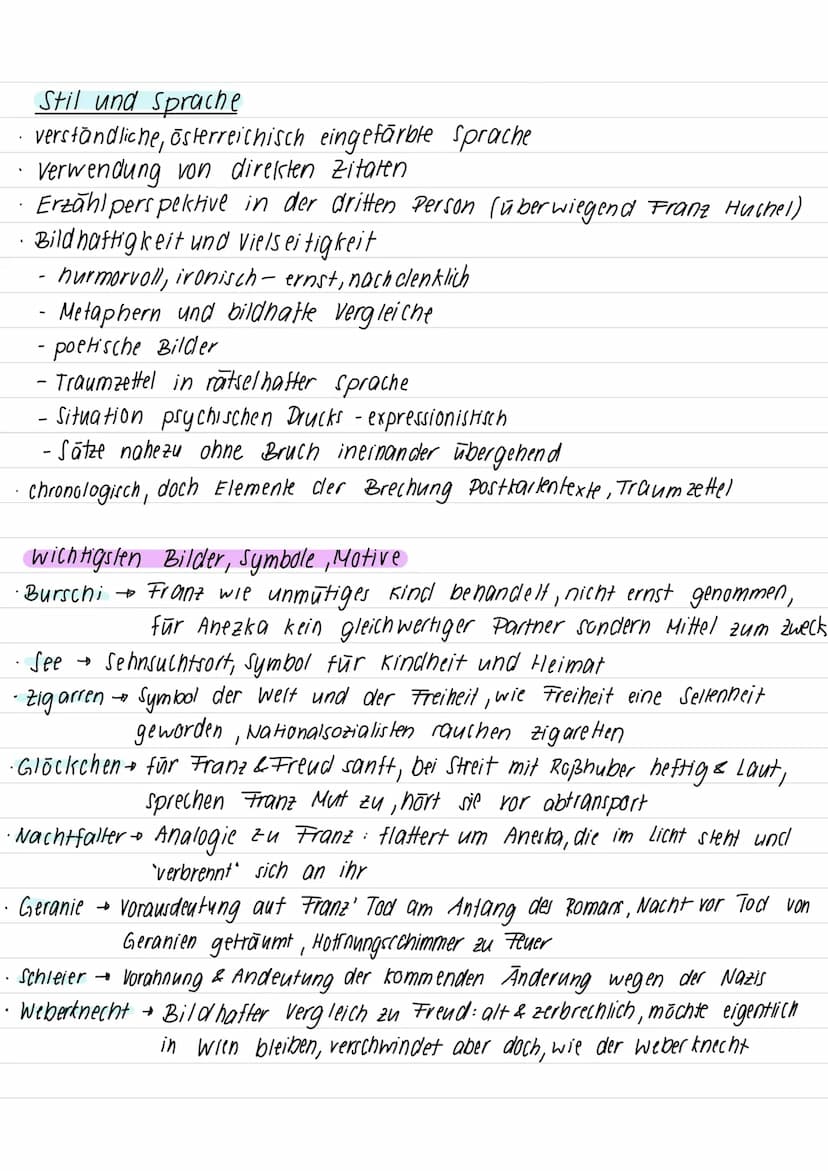 Stil und Sprache
· verständliche, österreichisch eingefärbte Sprache
· Verwendung von direkten Zitaten
· Erzählperspektive in der dritten Person (überwiegend Franz Huchel)
· Bildhaftigkeit und Vielseitigkeit
- hurmorvoll, ironisch – ernst, nachdenklich
- Metaphern und bildhafte Vergleiche
- poetische Bilder
- Traumzettel in rätselhafter Sprache
- Situation psychischen Drucks - expressionistisch
- Sätze nahezu ohne Bruch ineinander übergehend
· chronologisch, doch Elemente der Brechung Postkartentexte, Traumzettel
wichtigsten Bilder, Symbole, Motive
· Burschi → Franz wie unmütiges Kind behandelt, nicht ernst genommen,
für Anezka kein gleichwertiger Partner sondern Mittel zum Zweck
· See → Sehnsuchtsort, Symbol für Kindheit und Heimat
· Zigarren → Symbol der Welt und der Freiheit, wie Freiheit eine Seltenheit
geworden, Nationalsozialisten rauchen Zigaretten
· Glöckchen → für Franz & Freud sanft, bei Streit mit Roßhuber heftig & Laut,
sprechen Franz Mut zu, hört sie vor abtransport
· Nachtfalter → Analogie zu Franz: flattert um Aneska, die im Licht steht und
'verbrennt' sich an ihr
· Geranie → Vorausdeutung auf Franz' Tod am Anfang des Romans, Nacht vor Tod von
Geranien geträumt, Hoffnungsschimmer zu Feuer
· Schleier → Vorahnung & Andeutung der kommenden Änderung wegen der Nazis
· Weberknecht → Bildhafter Vergleich zu Freud: alt & zerbrechlich, möchte eigentlich
in Wien bleiben, verschwindet aber doch, wie der Weberknecht